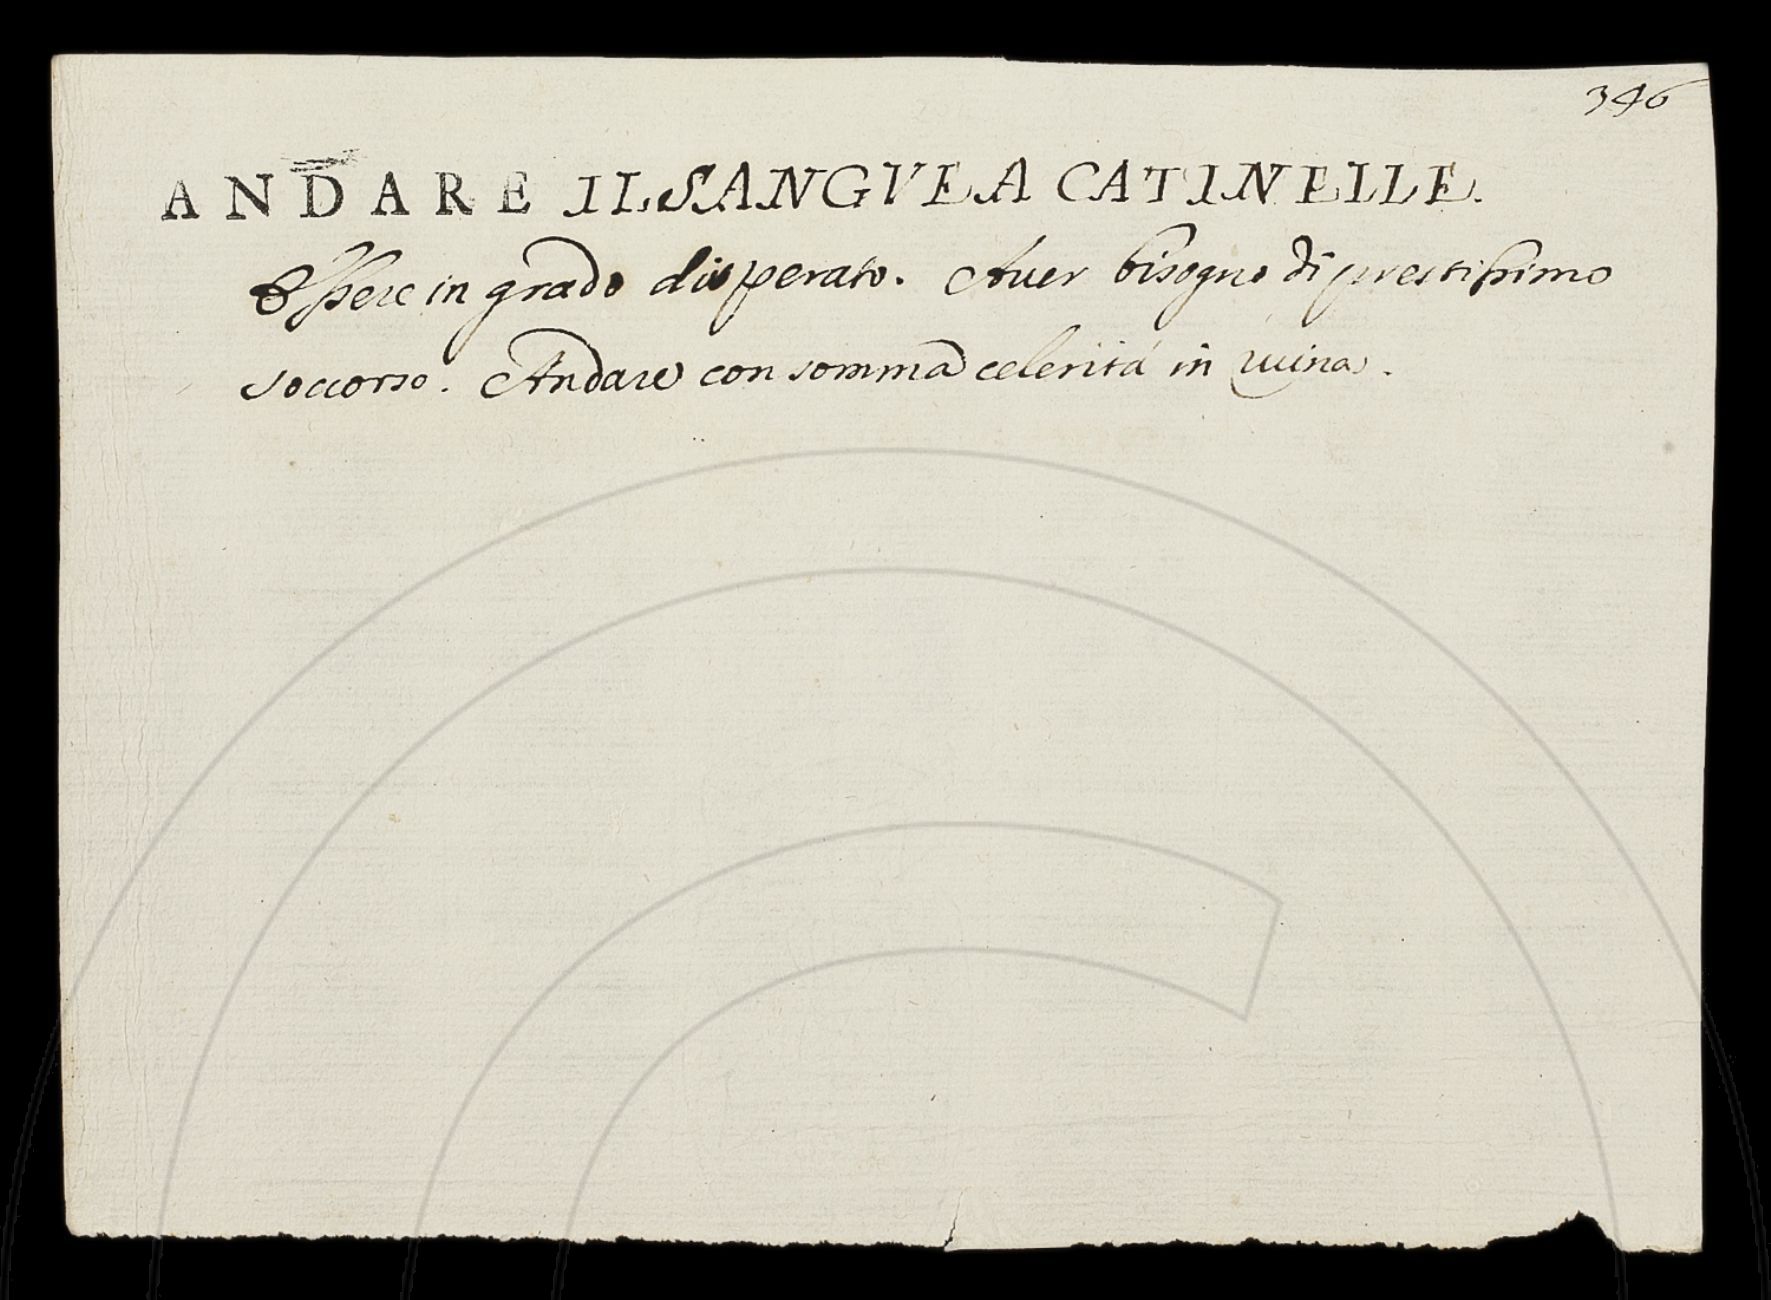 346
ANDARE IL SANGVE A CATINELLE.
Essere in grado disperato. Auer bisogno di prestissimo
soccorso. Andare con somma celerità in ruina.